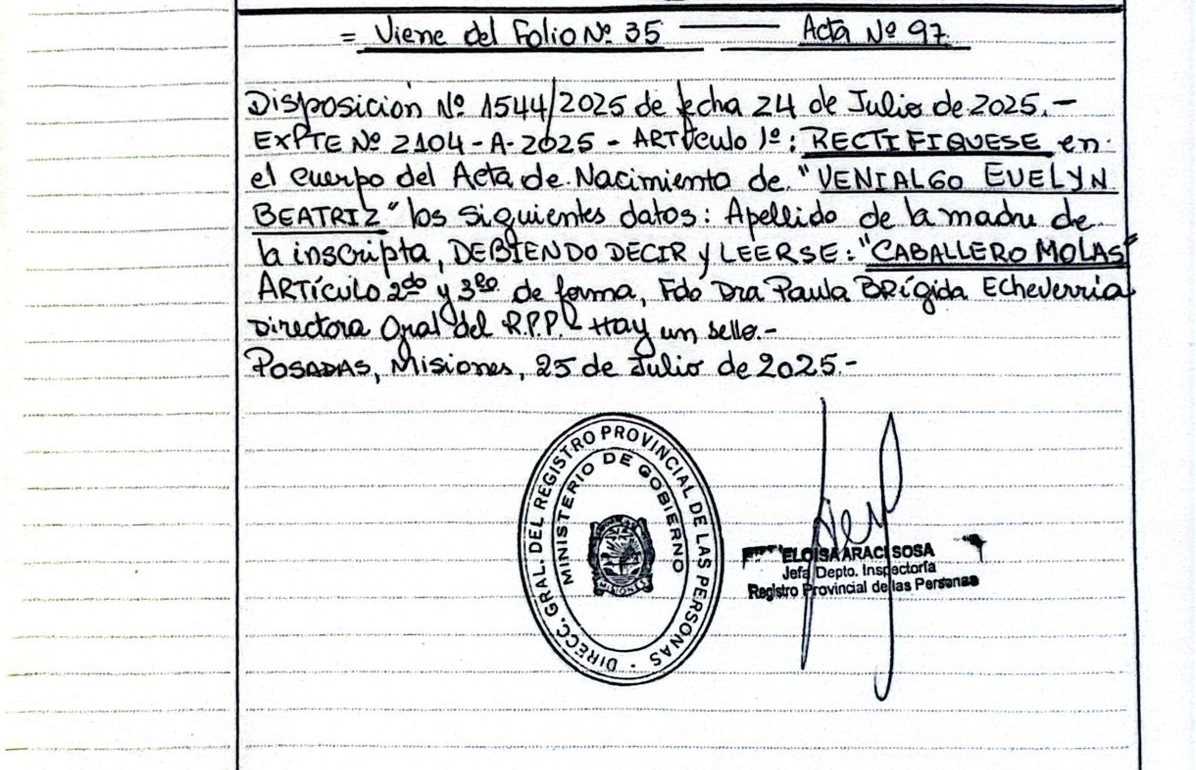 = Viene del Folio Nº 35 — Acta Nº 97
Disposición Nº 1544/2025 de fecha 24 de Julio de 2025.-
EXPTE Nº 2104-A-2025 - ARTículo 1º: RECTIFIQUESE en
el cuerpo del Acta de Nacimiento de "VENIALGO EVELYN
BEATRIZ" los siguientes datos: Apellido de la madre de
la inscripta, DEBIENDO DECIR y LEERSE: "CABALLERO MOLAS"
ARTículo 2do y 3ero de forma, Fdo Dra Paula BRígida Echeverria
Directora Gral del R.P.P.- Hay un sello.-
POSADAS, Misiones, 25 de Julio de 2025.-
DIRECC. GRAL. DEL REGISTRO PROVINCIAL DE LAS PERSONAS
MINISTERIO DE GOBIERNO
ELOISA ARACI SOSA
Jefa Depto. Inspectoría
Registro Provincial de las Personas